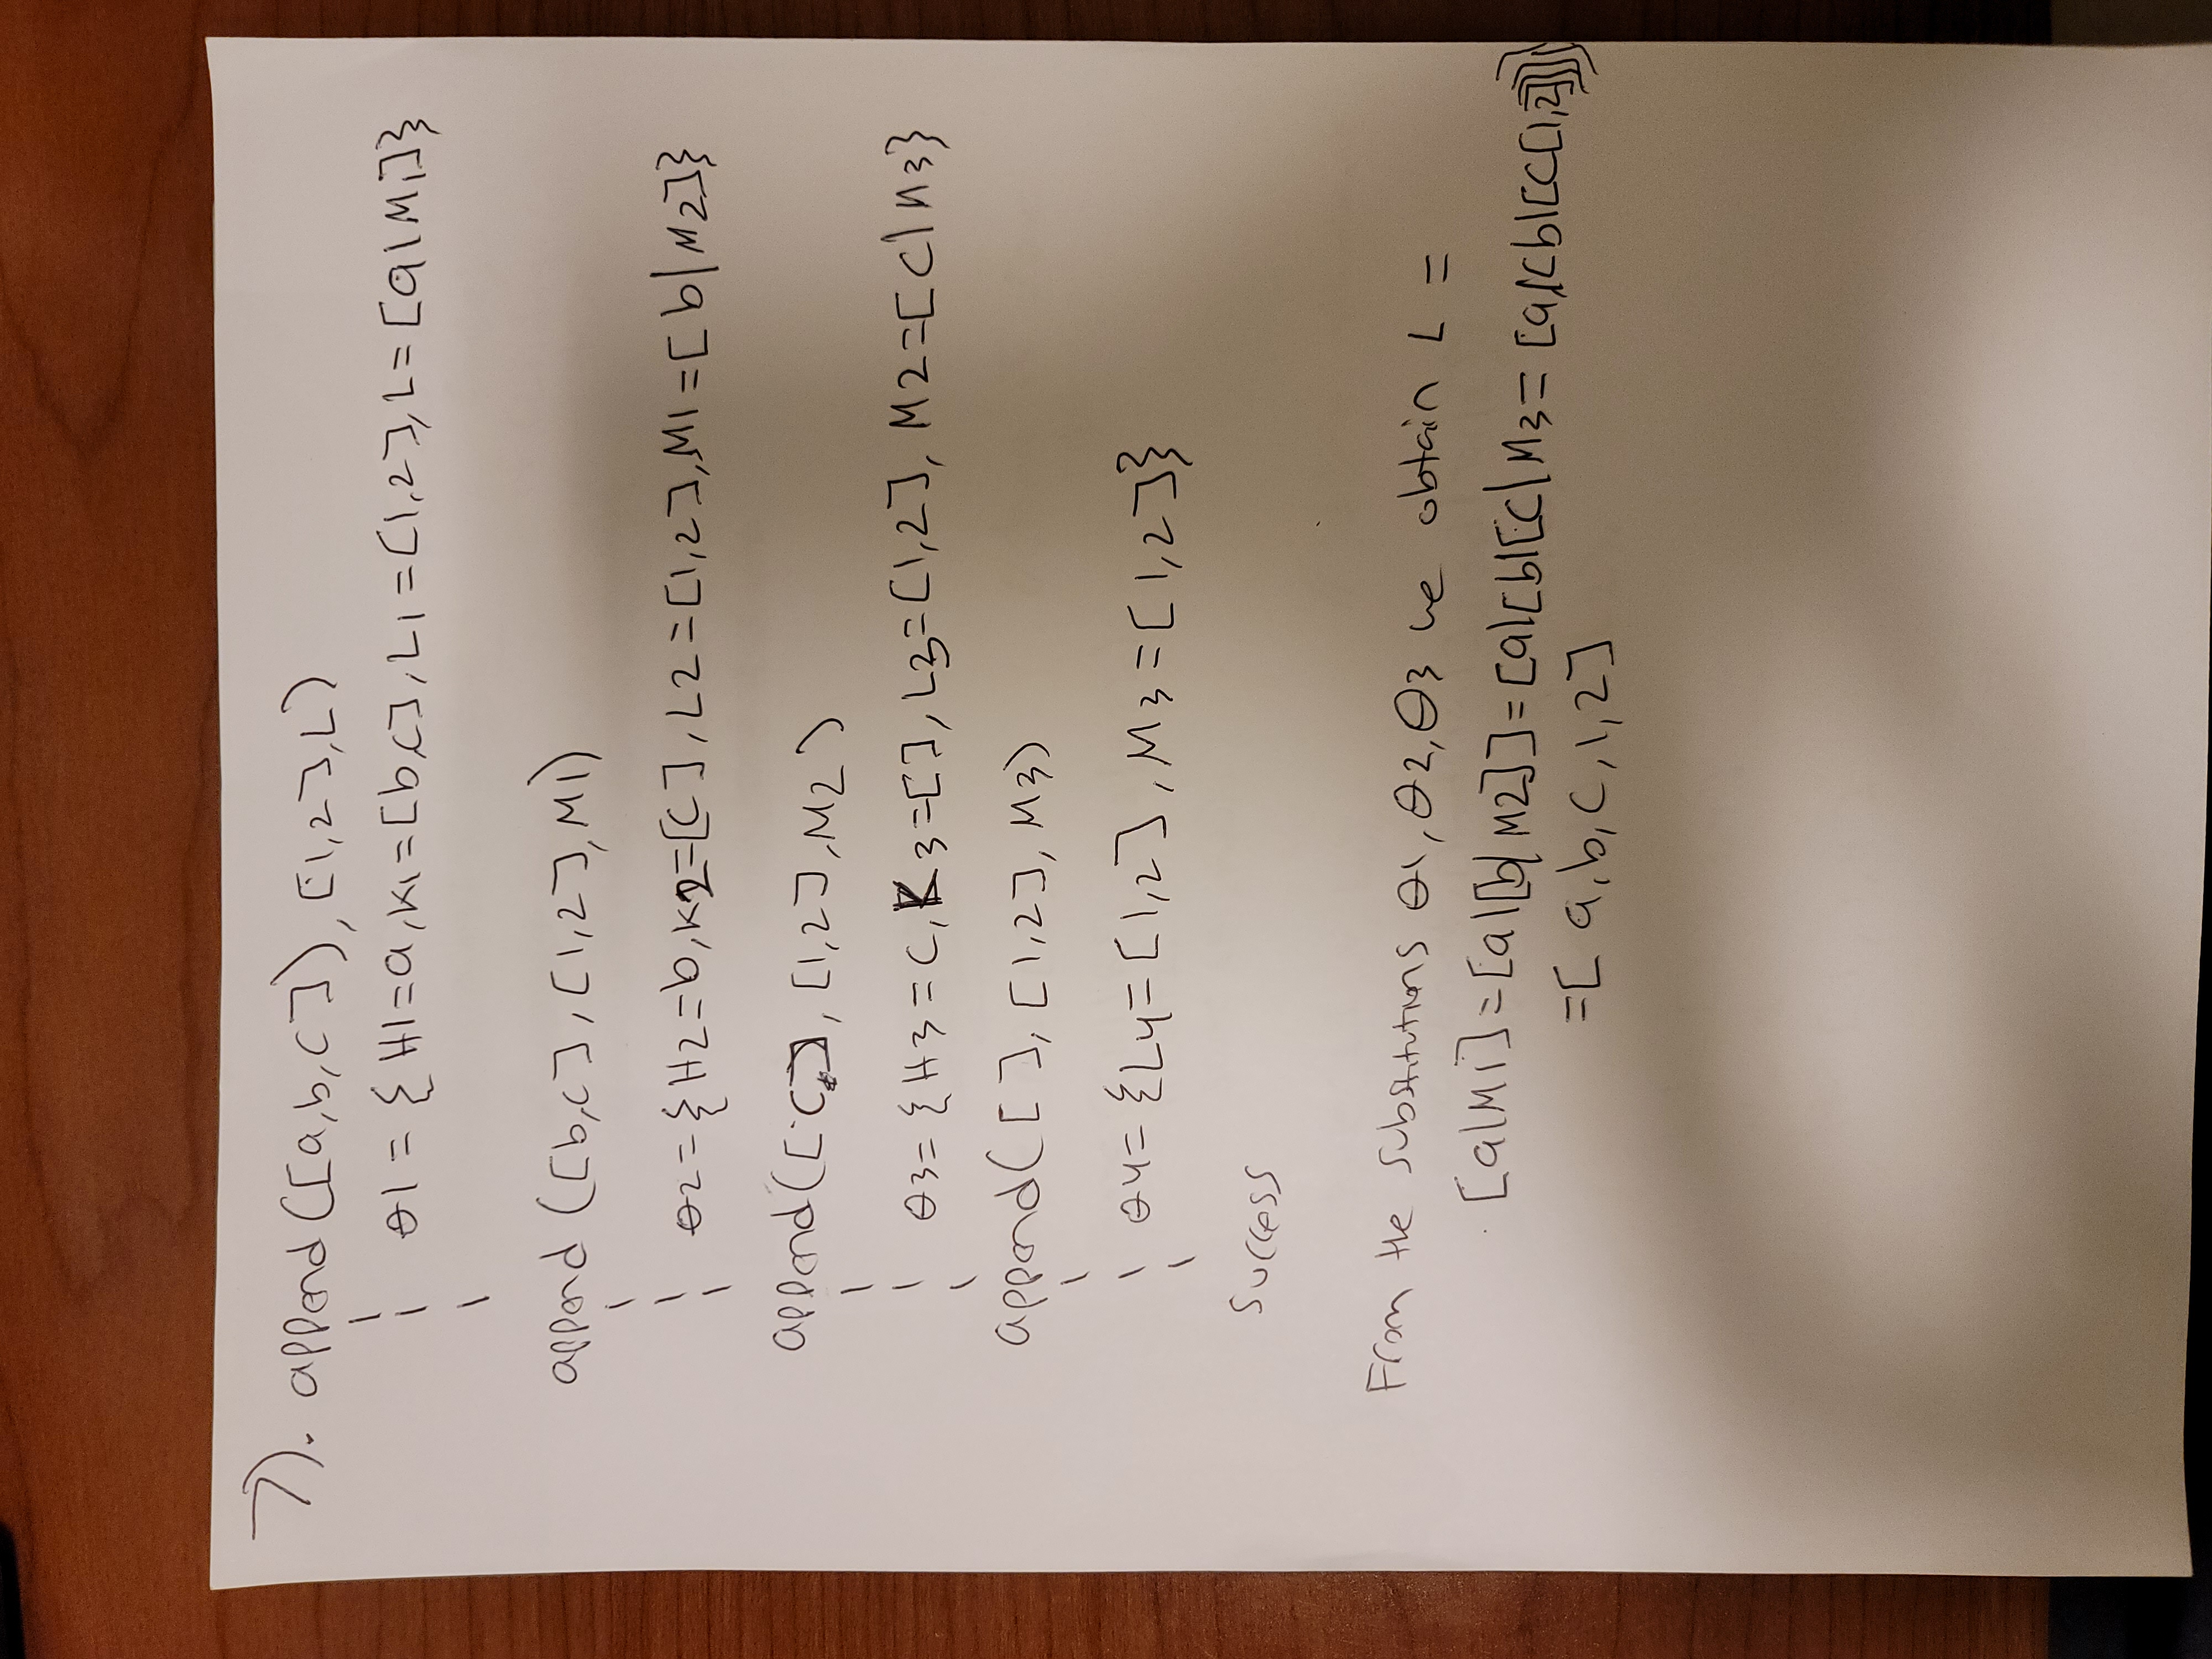 7). append([a,b,c]), [1,2], L)
θ1 = {H1=a, K1=[b,c], L1=[1,2], L=[a|M1]}
append([b,c], [1,2], M1)
θ2={H2=b, K2=[c], L2=[1,2], M1=[b|M2]}
append([c], [1,2], M2)
θ3={H3=c, K3=[], L3=[1,2], M2=[c|M3}
append([], [1,2], M3)
θ4={L4=[1,2], M3=[1,2]}
Success
From the substitutions θ1, θ2, θ3 we obtain L =
[a|M1]=[a|[b|M2]]=[a|[b|[c|M3= [a|[b|[c[1,2]]]]
=[a,b,c,1,2]